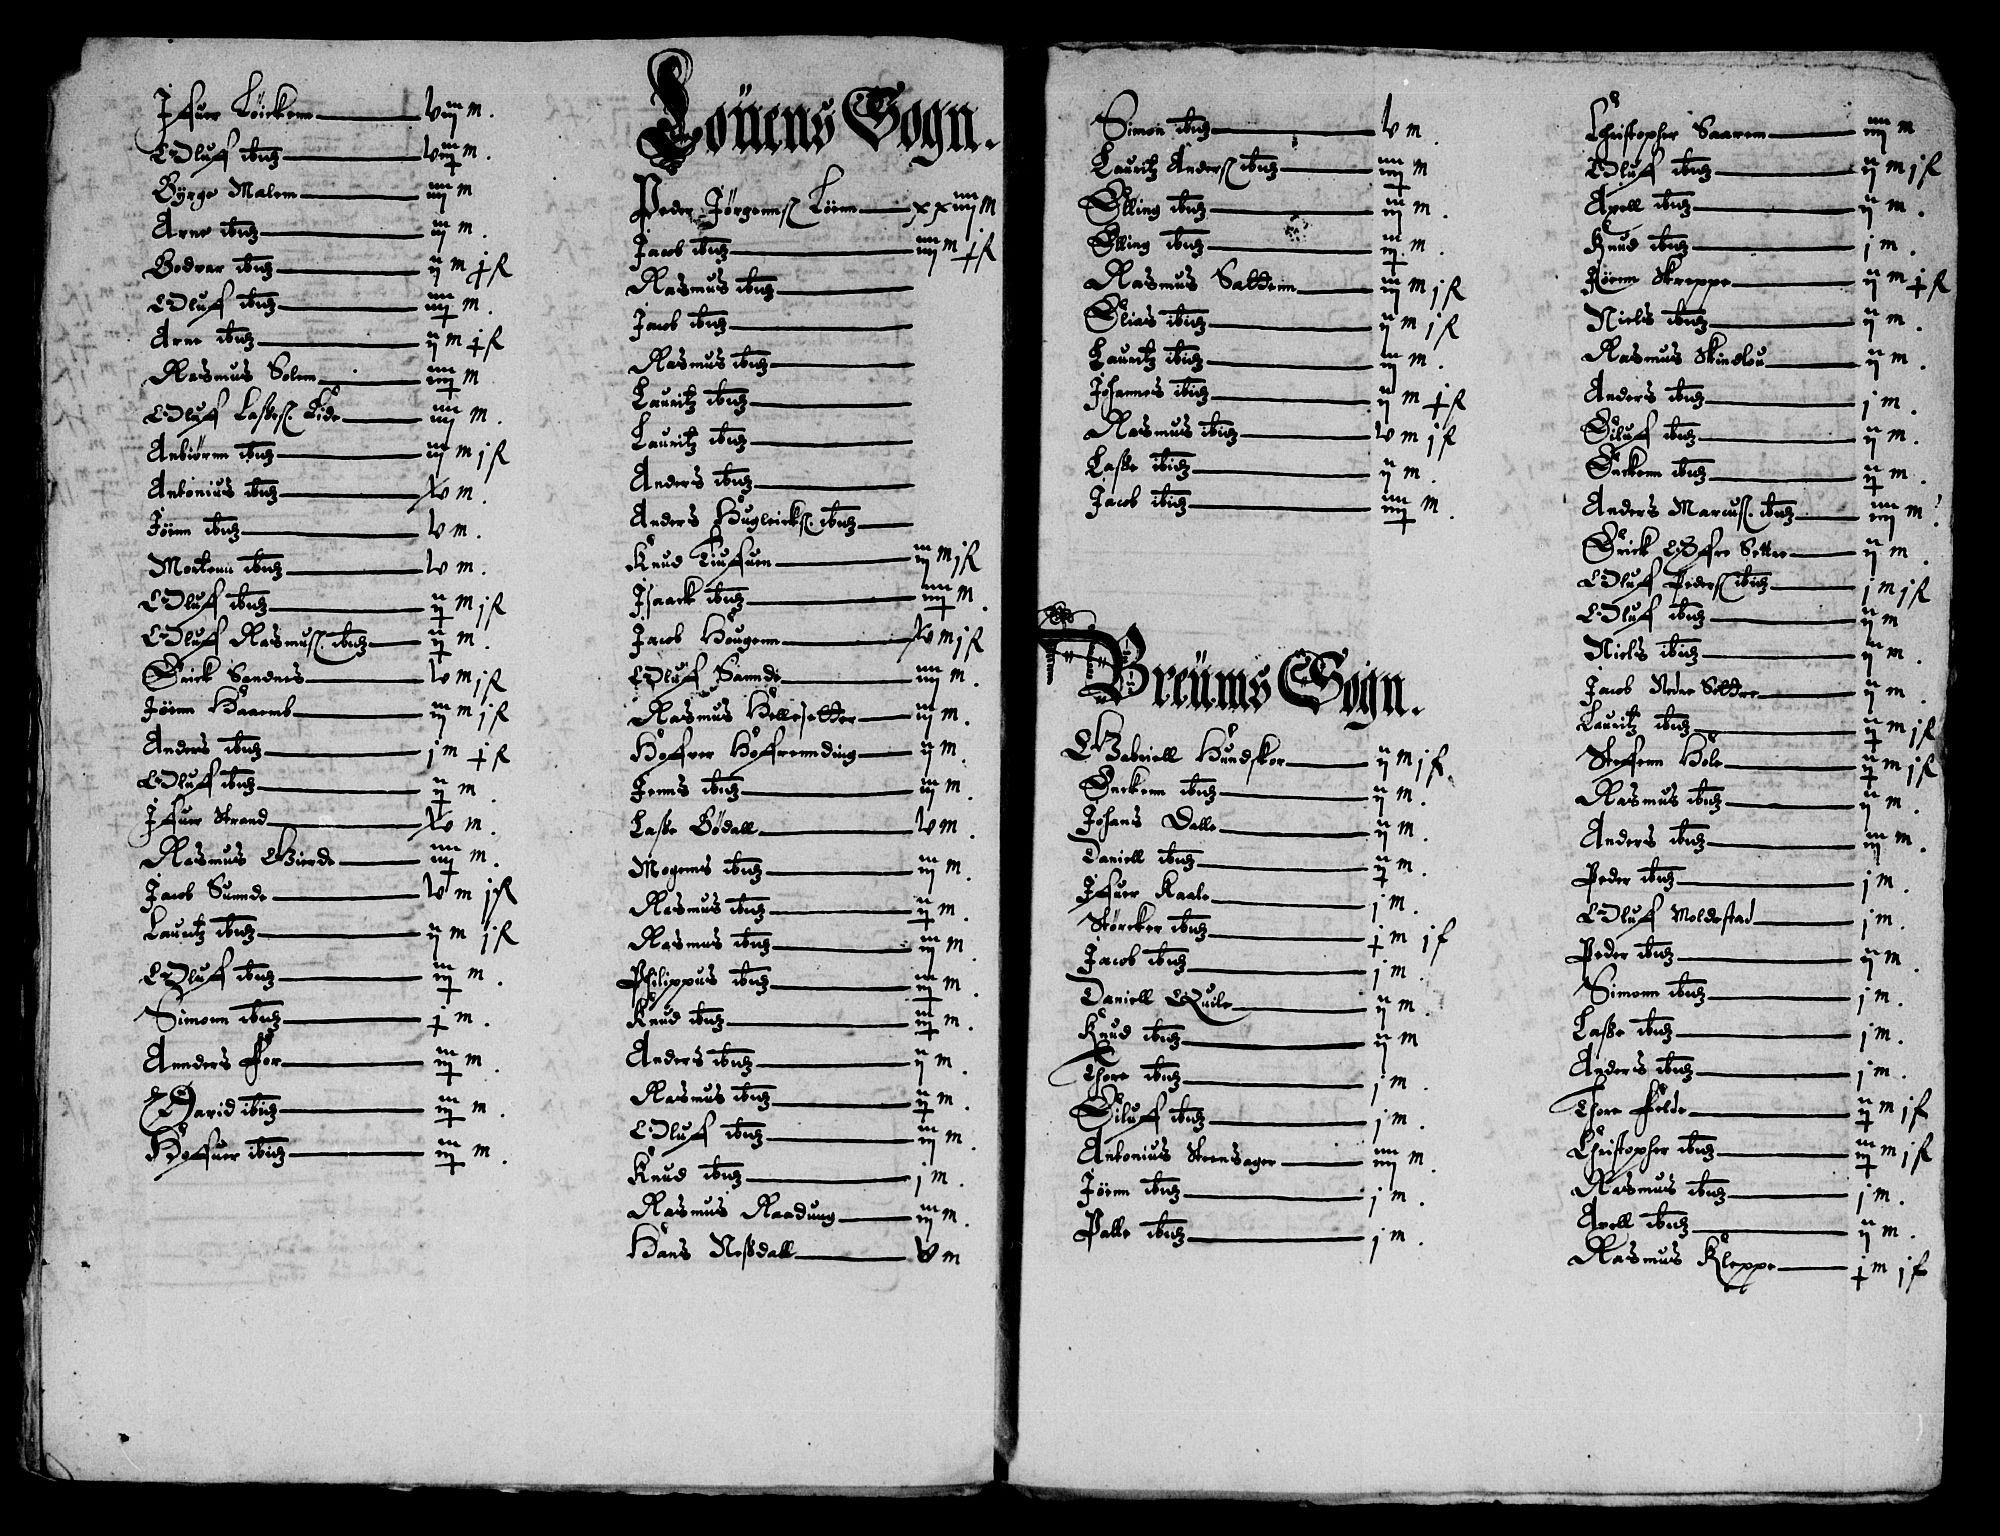 Iffuer Löickenn ——— viij m.
Oluff ibid: ——— m.
Byrge Malem ——— iiij m
Arne ibid: ——— iij m.
Bodvar ibid: ——— ij m j ß
Oluff ibid: ——— iiij m.
Arne ibid: ——— ij m j ß
Rasmus Solem ——— iiij m
Oluff Laßeß. Eide ——— iiij m.
Anbiörnn ibid: ——— iij m j ß
Antonius ibid: ——— v m.
Jönn ibid: ——— v m.
Mortenn ibid: ——— v m.
Oluff ibid: ——— ij m j ß
Oluff Rasmuß. ibid: ——— ij m.
Erick Sandnes ——— v m j ß
Jönn Haaemb ——— iij m j ß
Anders ibid: ——— j m j ß
Oluff ibid: ——— ij m.
Iffuer Strand ——— v m.
Rasmus Gierde ——— iiij m.
Jacob Sunnde ——— v m j ß
Lauritz ibid: ——— ij m j ß
Oluff ibid: ——— iij m.
Simonn ibid: ——— j m.
Annders For ——— iij m.
David ibid: ——— iij m.
Hoffuer ibid: ——— iij m.
Löuens Sogn.
Peder Jörgennß Löenn ——— xxiiij m
Jacob ibid: ——— iiij m j ß
Rasmus ibid: ———
Jacob ibid: ———
Rasmus ibid: ———
Lauritz ibid: ———
Lauritz ibid: ———
Anders ibid: ———
Anders Hugleickß. ibid: ———
Knud Tiuffuen ——— iij m j ß
Isaack ibid: ——— iiij m.
Jacob Hougenn ——— v m j ß
Oluff Sannde ——— iiij m.
Rasmus Hellesetter ——— iij m.
Hoffrer Hoffremding ——— ij m.
Jenns ibid: ——— iij m.
Laße Bödall ——— v m.
Mogenns ibid: ——— iij m.
Rasmus ibid: ——— ij m.
Rasmus ibid: ——— iij m
Philippus ibid: ——— iij m.
Knud ibid: ——— iij m.
Anders ibid: ——— ij m.
Rasmus ibid: ——— ij m.
Oluff ibid: ——— iij m.
Knud ibid: ——— j m.
Rasmus Raadung ——— iij m.
Hans Neßdall ——— v m
Simon ibid: ——— v m.
Lauritz Anderß ibid: ——— iiij m
Elling ibid: ——— iij m.
Elling ibid: ——— iij m.
Rasmus Sattheim ——— iij m j ß
Elias ibid: ——— ij m j ß
Lauritz ibid: ——— iij m.
Johannes ibid: ——— ij m j ß
Rasmus ibid: ——— v m j ß
Laße ibid: ——— ij m.
Jacob ibid: ——— iiij m.
Breüms Sogn.
Gabriell Hundskor ——— ij m j ß.
Enckenn ibid: ——— ij m.
Johans Dalle ——— ij m.
Daniell ibid: ——— ij m.
Iffuer Kaale ——— j m.
Störcker ibid: ——— j m j ß
Jacob ibid: ——— j m.
Daniell Quile ——— ij m.
Knud ibid: ——— ij m
Thore ibid: ——— j m.
Eiluff ibid: ——— j m.
Antonius Steensager ——— iiij m.
Jönn ibid: ——— j m.
Palle ibid: ——— j m.
Christopher Saarem ——— iiij m
Oluff ibid: ——— ij m j ß
Axell ibid: ——— ij m.
Knud ibid: ——— j m.
Jönn Skreppe ——— ij m j ß
Niels ibid: ——— ij m.
Rasmus Skindlou ——— ij m.
Anders ibid: ——— j m.
Eiluff ibid: ——— ij m.
Enckenn ibid: ——— ij m.
Anders Marcuß. ibid: ——— iiij m.
Erick Öffre Settre ——— ij m.
Oluff Pederß ibid: ——— j m j ß
Oluff ibid: ——— ij m
Niels ibid: ——— iij m.
Jacob Nedre Settre ——— ij m.
Lauritz ibid: ——— ij m j ß
Steffenn Hole ——— ij m j ß
Rasmus ibid: ——— ij m.
Anders ibid: ——— iij m.
Peder ibid: ——— j m.
Oluff Moldestad ——— j m.
Peder ibid: ——— ij m.
Simonn ibid: ——— j m.
Laße ibid: ——— j m.
Anders ibid: ——— j m.
Thore Felde ——— ij m j ß
Christopher ibid: ——— iij m j ß
Rasmus ibid: ——— j m.
Axell ibid: ——— ij m.
Rasmus Kleppe ——— j m j ß